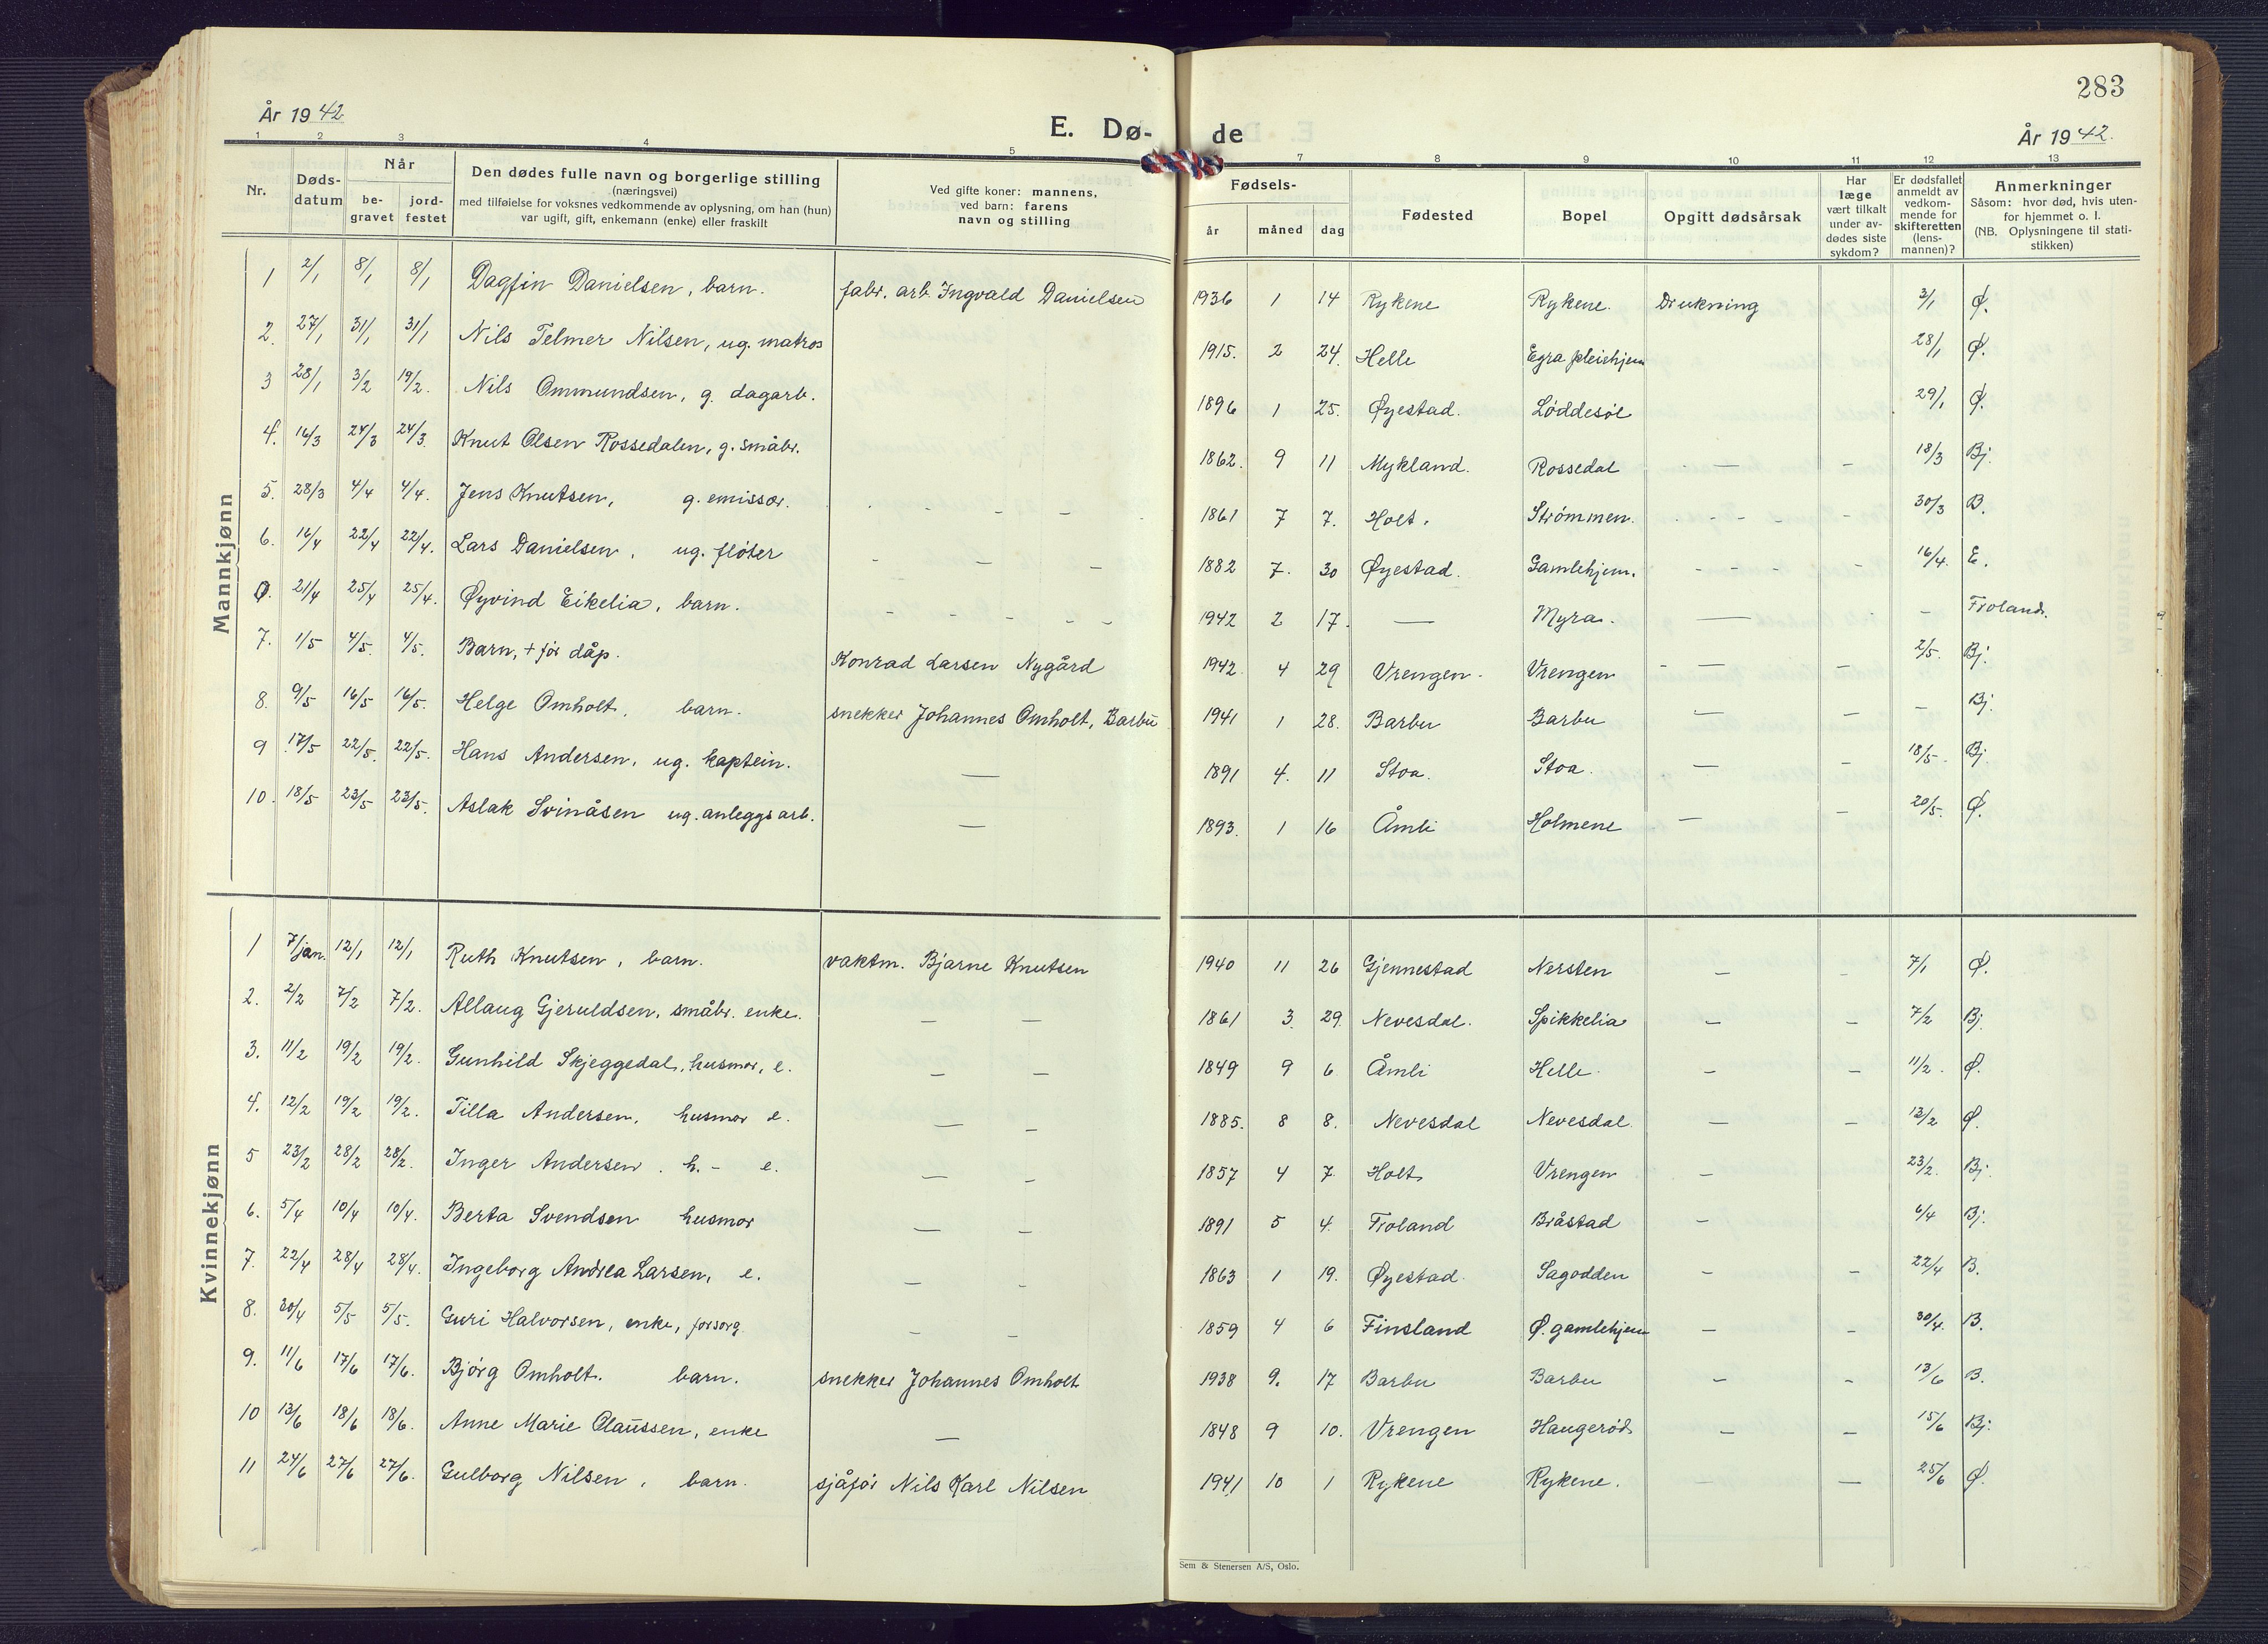 283
År 1942
E. Dø-
de
År 1942.
1 2 3 4 5 7 8 9 10 11 12 13
Nr.
Døds-
datum
Når
be-
gravet
jord-
festet
Den dødes fulle navn og borgerlige stilling
(næringsvei)
med tilføielse for voksnes vedkommende av oplysning, om han (hun)
var ugift, gift, enkemann (enke) eller fraskilt
Ved gifte koner: mannens,
ved barn: farens
navn og stilling
Fødsels-
år måned dag
Fødested
Bopel
Opgitt dødsårsak
Har
læge
vært tilkalt
under av-
dødes siste
sykdom?
Er dødsfallet
anmeldt av
vedkom-
mende for
skifteretten
(lens-
mannen)?
Anmerkninger
Såsom: hvor død, hvis uten-
for hjemmet o. l.
(NB. Oplysningene til stati-
stikken)
Mannkjønn
1 2/1 8/1 8/1 Dagfin Danielsen, barn. fabr. arb. Ingvald Danielsen 1936 1 14 Rykene Rykene. Drukning 3/1 Ø.
2. 27/1 31/1 31/1 Nils Telmer Nilsen, ug. matros 1915. 2 24. Helle Egra pleiehjem 28/1 Ø.
3 28/1 3/2 19/2. Nils Ommundsen, g. dagarb. 1896 1 25. Øyestad. Løddesøl 29/1 Ø.
4. 16/3 24/3 24/3. Knut Olsen Rossedalen, g. småbr. 1862. 9 11 Mykland. Rossedal — – 18/3 Bj.
5. 28/3 4/4 4/4. Jens Knutsen, g. emissær. – – 1861 7 7. Holt. Strømmen. - - - - - 30/3 B.
6. 16/4 22/4 22/4. Lars Danielsen, ug. fløter – – – 1882 7. 30 Øyestad. Gamlehjem. - - - - - 16/4. E.
0. 21/4 25/4 25/4. Øyvind Eikelia, barn. - - - - - 1942 2 17. — Myra. — - – Froland.
7. 1/5 4/5. 4/5. Barn, + før dåp. Konrad Larsen Nygård 1942. 4 29 Vrengen. Vrengen - — – 2/5. Bj.
8. 9/5 16/5 16/5. Helge Omholt, barn. snekker Johannes Omholt, Barbu 1941 1 28. Barbu Barbu — – - Bj.
9 17/5 22/5. 22/5. Hans Andersen, ug. kaptein. — 1891 4. 11 Stoa. Stoa. — – 18/5. Bj.
10. 18/5 23/5 23/5. Aslak Svinåsen ug. anleggsarb. — 1893. 1 16 Åmli Holmene — – 20/5. Ø.
Kvinnekjønn
1 7/jan. 12/1 12/1 Ruth Knutsen, barn. vaktm. Bjarne Knutsen 1940 11 26 Gjennestad Nersten – – 7/1 Ø.
2. 2/2 7/2 7/2. Allaug Gjeruldsen, småbr. enke. – – 1861 3. 29. Nevesdal. Spikkelia – – 7/2 Bj.
3. 11/2 19/2 19/2. Gunhild Skjeggedal, husmor, e. – – 1849 9 6 Åmli Helle. – – 11/2. Ø.
4. 12/2 19/2 19/2. Tilla Andersen, husmor e. — – 1885. 8 8. Nevesdal Nevesdal. – – 13/2 Ø.
5 23/2 28/2 28/2. Inger Andersen. h. - e. — – 1857 4 7. Holt Vrengen – 23/2. Bj.
6. 5/4 10/4 10/4. Berta Svendsen husmor — – 1891 5 4. Froland Bråstad – 6/4 Bj.
7. 22/4 28/4 28/4. Ingeborg Andrea Larsen, e. – – 1863 1 19. Øyestad. Sagodden – – 22/4 B.
8. 30/4 5/5 5/5. Guri Halvorsen, enke, forsorg. – – 1859 4 6 Finsland Ø. gamlehjem – – 30/4. B.
9. 11/6 17/6 17/6. Bjørg Omholt. barn. snekker Johannes Omholt 1938 9. 17 Barbu Barbu – – 13/6 B.
10 13/6 18/6 18/6. Anne Marie Olaussen, enke — 1848 9 10. Vrengen Haugerød – – 15/6 Bj.
11 24/6 27/6 27/6. Gulborg Nilsen, barn. sjåfør Nils Karl Nilsen 1941 10 1 Rykene Rykene. – — 25/6 Ø.
Sem & Stenersen A/S, Oslo.